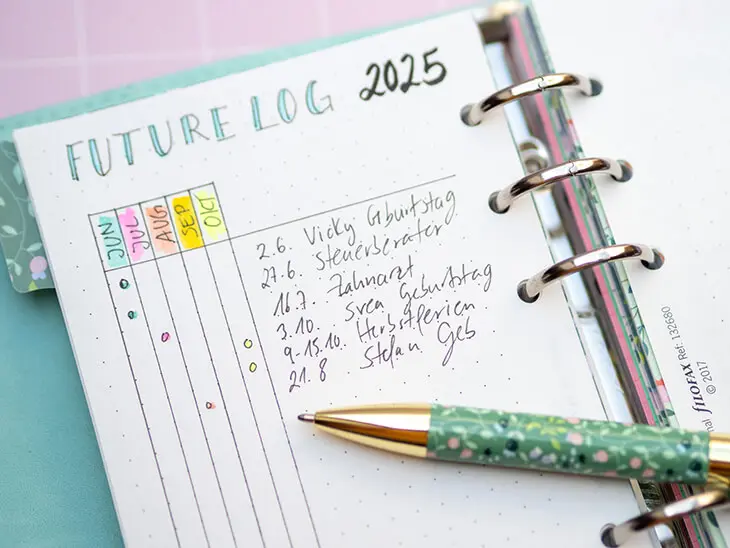 FUTURE LOG 2025
JUN JUL AUG SEP OKT
2.6. Vicky Geburtstag
27.6. Steuerberater
16.7. Zahnarzt
3.10. Svea Geburtstag
9.-15.10. Herbstferien
21.8 Stefan Geb
FILOFAX Ref: 132680
© 2017